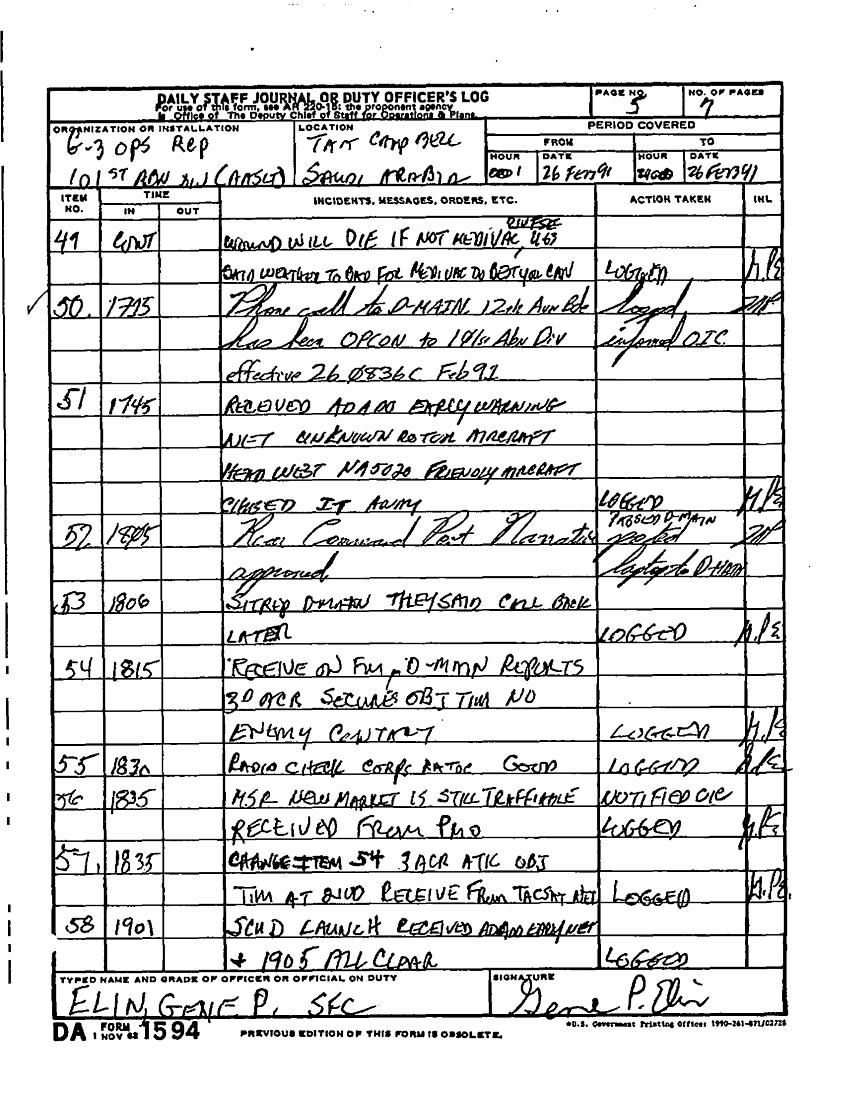 DAILY STAFF JOURNAL OR DUTY OFFICER'S LOG
For use of this form, see AR 220-15; the proponent agency
is Office of The Deputy Chief of Staff for Operations & Plans.
PAGE NO.
5
NO. OF PAGES
7
ORGANIZATION OR INSTALLATION
G-3 OPS REP
101ST ABN DIV (AASLT)
LOCATION
TAA CAMPBELL
SAUDI ARABIA
PERIOD COVERED
FROM
TO
HOUR
0001
DATE
26 FEB 91
HOUR
2400
DATE
26 FEB 91
ITEM NO.
TIME
IN
OUT
INCIDENTS, MESSAGES, ORDERS, ETC.
ACTION TAKEN
INL
49 CONT WOUND WILL DIE IF NOT MEDIVAC,
SAID WEATHER TO BAD FOR MEDIVAC DO BEST YOU CAN LOGGED
50. 1715 Phone call to D-MAIN. 12th Avn Bde logged,
has been OPCON to 101st Abn Div informed OIC
effective 26 0836C Feb 91
51 1745 RECEIVED ADADO EARLY WARNING
NET UNKNOWN ROTOR AIRCRAFT
HEAD WEST NA5020 FRIENDLY AIRCRAFT
CHASED IT AWAY LOGGED
52. 1805 Rear Command Post Narrative PASSED D-MAIN
approved laptop to D-MAIN
53 1806 SITREP D-MAIN THEY SAID CALL BACK
LATER LOGGED
54 1815 RECEIVE ON FM, D-MAIN REPORTS
3D ACR SECURES OBJ TIM NO
ENEMY CONTACT LOGGED
55 1830 RADIO CHECK CORPS RATOC GOOD LOGGED
56 1835 MSR NEW MARKET IS STILL TRAFFIABLE NOTIFIED OIC
RECEIVED FROM PMO LOGGED
57. 1835 CHANGE ITEM 54 3 ACR ATIC OBJ
TIM AT RECEIVE FROM TACSAT NET LOGGED
58 1901 SCUD LAUNCH RECEIVED ADADO EARLY NET
+ 1905 ALL CLEAR LOGGED
TYPED NAME AND GRADE OF OFFICER OR OFFICIAL ON DUTY
ELIN, GENE P. SFC
SIGNATURE
Gene P. Elin
DA FORM 1 NOV 62 1594
PREVIOUS EDITION OF THIS FORM IS OBSOLETE.
*U.S. Government Printing Office: 1990-261-871/02728